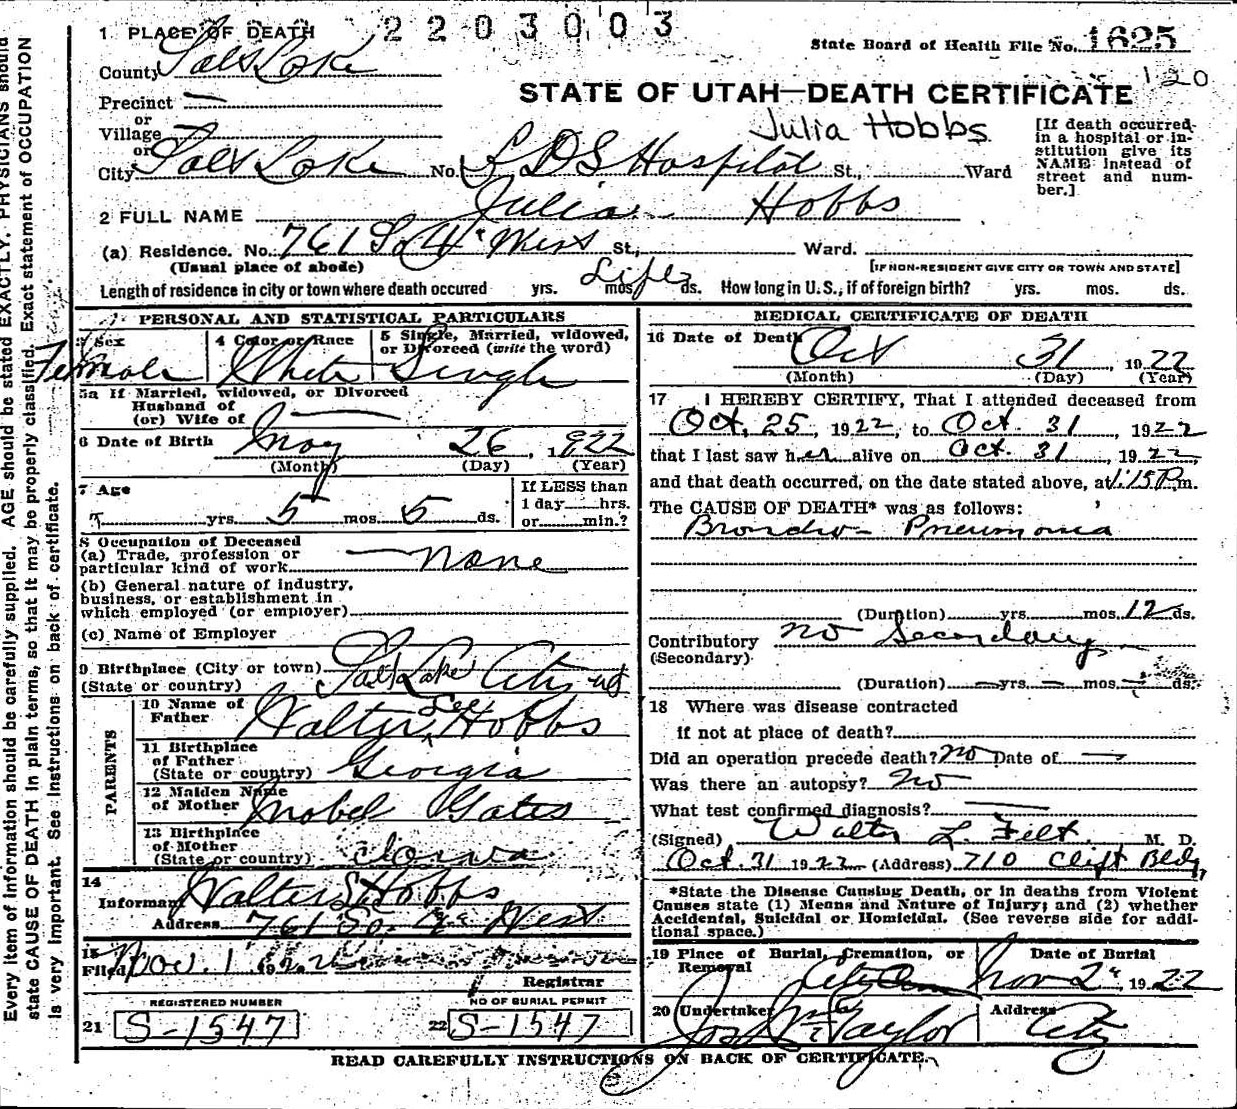 2203003
1 PLACE OF DEATH
State Board of Health File No. 1625
County Salt Lake
120
Precinct —
STATE OF UTAH—DEATH CERTIFICATE
or
Village
Julia Hobbs
or
City Salt Lake No. L D S Hospital St., Ward
[If death occurred in a hospital or institution give its NAME instead of street and number.]
2 FULL NAME Julia Hobbs
(a) Residence. No. 761 So 4" West St., Ward.
(Usual place of abode)
[IF NON-RESIDENT GIVE CITY OR TOWN AND STATE]
Length of residence in city or town where death occured yrs. mos. ds. Life How long in U.S., if of foreign birth? yrs. mos. ds.
PERSONAL AND STATISTICAL PARTICULARS
3 Sex
Female
4 Color or Race
White
5 Single, Married, widowed, or Divorced (write the word)
Single
5a If Married, widowed, or Divorced
Husband of
(or) Wife of —
6 Date of Birth May 26, 1922
(Month) (Day) (Year)
7 Age
yrs. 5 mos. 5 ds.
If LESS than
1 day hrs.
or min.?
8 Occupation of Deceased
(a) Trade, profession or
particular kind of work none
(b) General nature of industry,
business, or establishment in
which employed (or employer)
(c) Name of Employer
9 Birthplace (City or town) Salt Lake City
(State or country)
PARENTS
10 Name of
Father Walter Lee Hobbs
11 Birthplace
of Father
(State or country) Georgia
12 Maiden Name
of Mother Mabel Gates
13 Birthplace
of Mother
(State or country) Iowa
14
Informant Walter L Hobbs
Address 761 So. 4" West
15
Filed Nov. 1 1922
Registrar
REGISTERED NUMBER
21 S-1547
NO OF BURIAL PERMIT
22 S-1547
MEDICAL CERTIFICATE OF DEATH
16 Date of Death Oct 31 1922
(Month) (Day) (Year)
17 I HEREBY CERTIFY, That I attended deceased from
Oct. 25, 1922, to Oct. 31, 1922
that I last saw her alive on Oct. 31, 1922,
and that death occurred, on the date stated above, at 1:15 P.m.
The CAUSE OF DEATH* was as follows:
Broncho-Pneumonia
(Duration) yrs. mos. 12 ds.
Contributory no Secondary
(Secondary)
(Duration) — yrs. — mos. — ds.
18 Where was disease contracted
if not at place of death?
Did an operation precede death? no Date of —
Was there an autopsy? no
What test confirmed diagnosis? —
(Signed) Walter L. Felt, M. D.
Oct. 31 1922 (Address) 710 Clift Bldg,
*State the Disease Causing Death, or in deaths from Violent
Causes state (1) Means and Nature of Injury; and (2) whether
Accidental, Suicidal or Homicidal. (See reverse side for addi-
tional space.)
19 Place of Burial, Cremation, or
Removal
City Cem
Date of Burial
Nov 2", 1922
20 Undertaker
Jos Wm Taylor
Address
City
READ CAREFULLY INSTRUCTIONS ON BACK OF CERTIFICATE.
Every item of information should be carefully supplied. AGE should be stated EXACTLY. PHYSICIANS should
state CAUSE OF DEATH in plain terms, so that it may be properly classified. Exact statement of OCCUPATION
is very important. See Instructions on back of certificate.